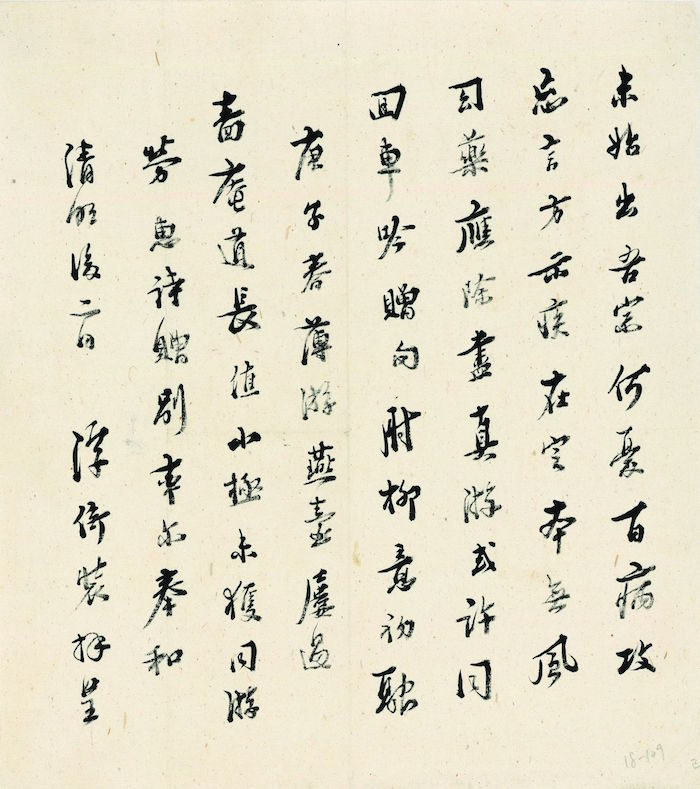 未始出吾宗何憂百病攻
忘言方示疾在定本無風
幻藥應除盡真游或許同
回車吟贈句肘柳意初融
庚子春薄游燕臺屢過
嗇庵道長值小極未獲同游
勞惠詩贈別率爾奉和
清明後二日 倚裝拜呈
18-109